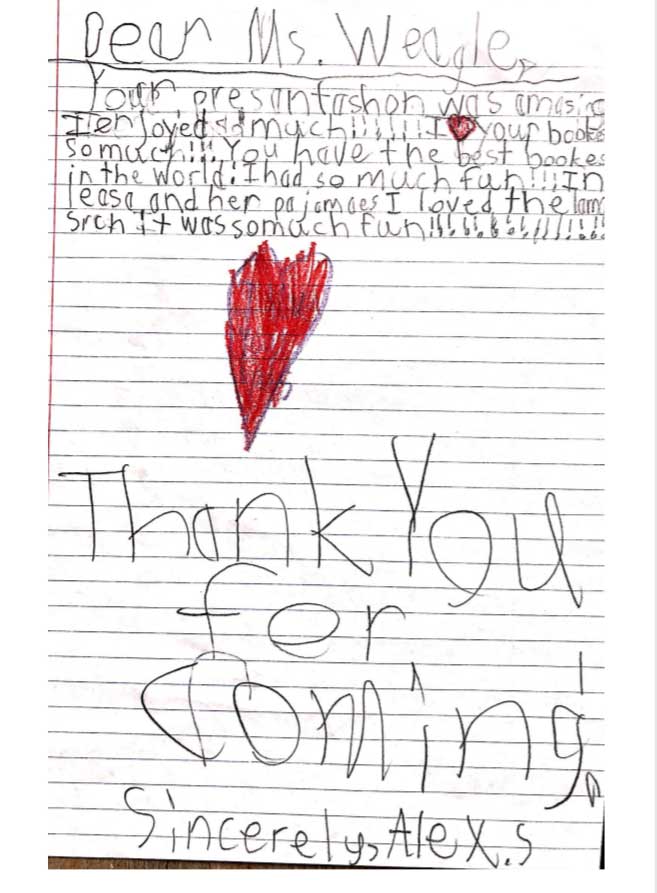 Dear Ms. Weagle,
Your presantashon was amasing
I enjoyed so much!!!!!!!I ❤ your bookes
so much!!! You have the best bookes
in the world. I had so much fun!!!In
leasa and her pajamaes I loved the
srch it was so much fun!!!!!!!!!!!!!!
Thank You
for
coming!
Sincerely, Alex.S